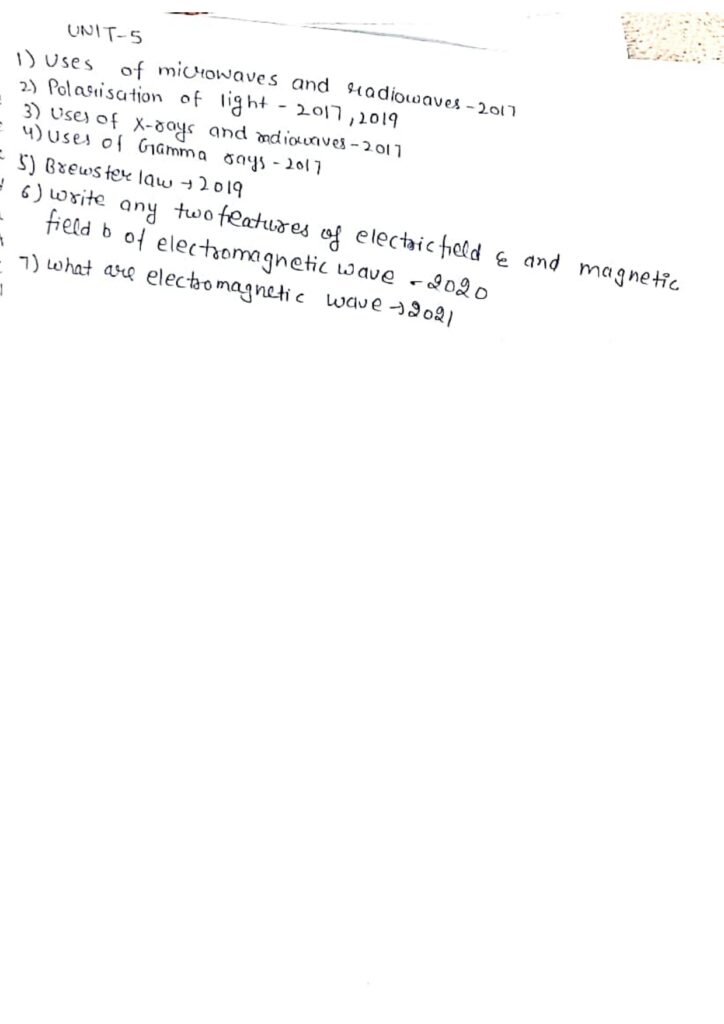 UNIT-5
1) Uses of microwaves and radiowaves - 2017
2) Polarisation of light - 2017, 2019
3) Uses of X-rays and radiowaves - 2017
4) Uses of Gamma rays - 2017
5) Brewster law → 2019
6) Write any two features of electric field E and magnetic
field b of electromagnetic wave - 2020
7) What are electromagnetic wave → 2021